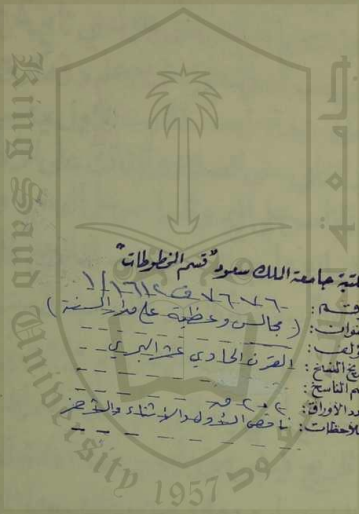 جامعة
King Saud University
1957
مكتبة جامعة الملك سعود "قسم المخطوطات"
الرقم: ٧٦٧٦ ف ١٦١٢/١
العنوان: (مجالس وعظية على مدار السنة)
المؤلف:
تاريخ النسخ: القرن الحادي عشر الهجري
اسم الناسخ:
عدد الأوراق: ٢٠٢ ق
الملاحظات: ناقص الأول والأثناء والآخر